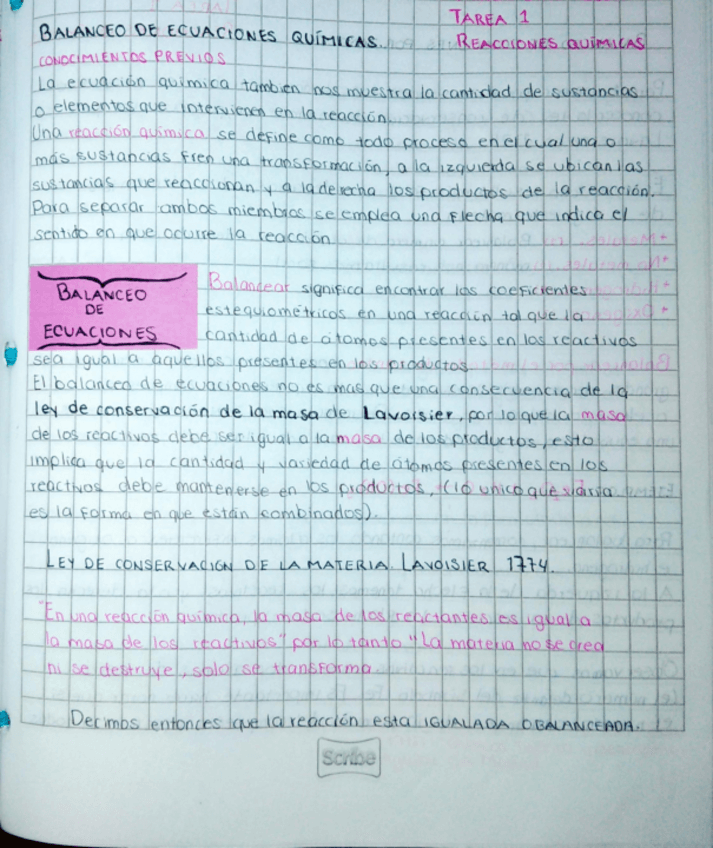 TAREA 1
BALANCEO DE ECUACIONES QUÍMICAS. REACCIONES QUIMICAS
CONOCIMIENTOS PREVIOS
La ecuación quimica tambien nos muestra la cantidad de sustancias
o elementos que intervienen en la reacción.
Una reacción quimica se define como todo proceso en el cual una o
más sustancias fren una transformación, a la izquierda se ubican las
sustancias que reaccionan y a la derecha los productos de la reacción.
Para separar ambos miembros se emplea una flecha que indica el
sentido en que ocurre la reacción
BALANCEO
DE
ECUACIONES
Balancear significa encontrar los coeficientes
estequiométricos en una reacción tal que la
cantidad de átomos presentes en los reactivos
sea igual a aquellos presentes en los productos
El balanceo de ecuaciones no es mas que una consecuencia de la
ley de conservación de la masa de Lavoisier, por lo que la masa
de los reactivos debe ser igual a la masa de los productos, esto
implica que la cantidad y variedad de átomos presentes en los
reactivos debe mantenerse en los productos, (lo unico que varia
es la forma en que están combinados).
LEY DE CONSERVACIÓN DE LA MATERIA. LAVOISIER 1774.
"En una reacción química, la masa de los reactantes es igual a
la masa de los reactivos" por lo tanto "La materia no se crea
ni se destruye, solo se transforma
Decimos entonces que la reacción esta IGUALADA O BALANCEADA.
Scribe